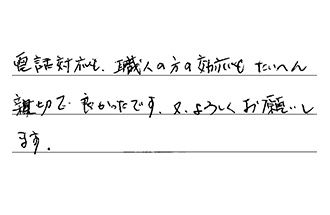 電話対応も、職人の方の対応も たいへん
親切で 良かったです、又、よろしくお願いし
ます。